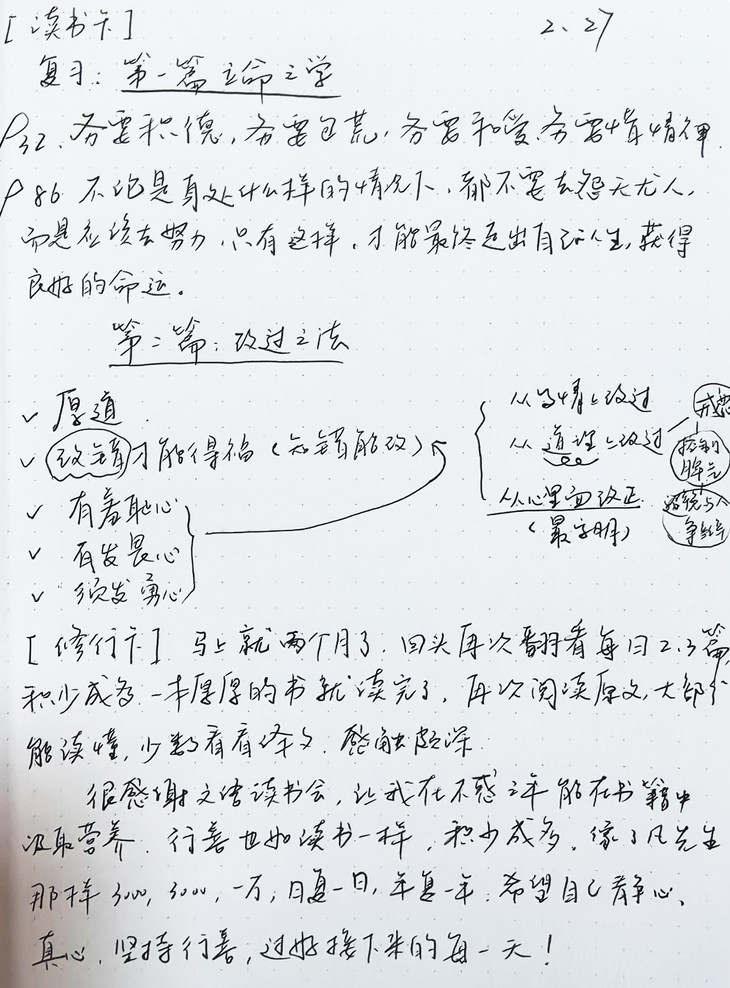 [读书卡] 2、27
复习：第一篇立命之学
P32. 务要积德，务要包荒，务要和爱，务要惜精神
P86. 不论是身处什么样的情况下，都不要去怨天尤人，
而是应该去努力，只有这样，才能最终走出自己的人生，获得
良好的命运。
第二篇：改过之法
✓ 厚道
✓ 改错才能得福（知错能改）
✓ 有羞耻心
✓ 有发畏心
✓ 须发勇心
从事情上改过
从道理上改过
从心里面改正
（最高明）
戒怒
控制
脾气
与人
争辩
[修行卡] 马上就两个月了，回头再次翻看每日2.3篇，
积少成多，一本厚厚的书就读完了，再次阅读原文，大部分
能读懂，少数看看译文，感触颇深
很感谢文信读书会，让我在不惑之年能在书籍中
汲取营养，行善也如读书一样，积少成多，像了凡先生
那样3000，3000，一万，日复一日，年复一年，希望自己静心、
真心，坚持行善，过好接下来的每一天！